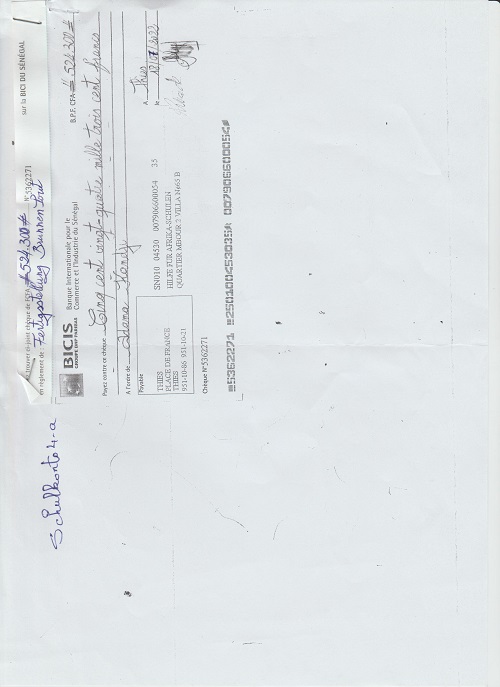 Schulkonto 4-a
sur la BICI DU SÉNÉGAL
trouver ci-joint chèque de FCFA #524.300# N°5362271
en règlement de Fertigstellung Brunnen
BICIS
GROUPE BNP PARIBAS
Banque Internationale pour le
Commerce et l'Industrie du Sénégal
B.P.F. CFA #524.300#
Payez contre ce chèque Cinq cent vingt-quatre mille trois cent francs
A l'ordre de Adama
Payable
A Thies
le
THIES
PLACE DE FRANCE
THIES
951-10-86 951-10-21
SN010 04530 007906600054 35
HILFE FUR AFRIKA-SCHULEN
QUARTIER MBOUR 3 VILLA N465 B
Chèque N°5362271
5362271 25010045303 5 007906600054